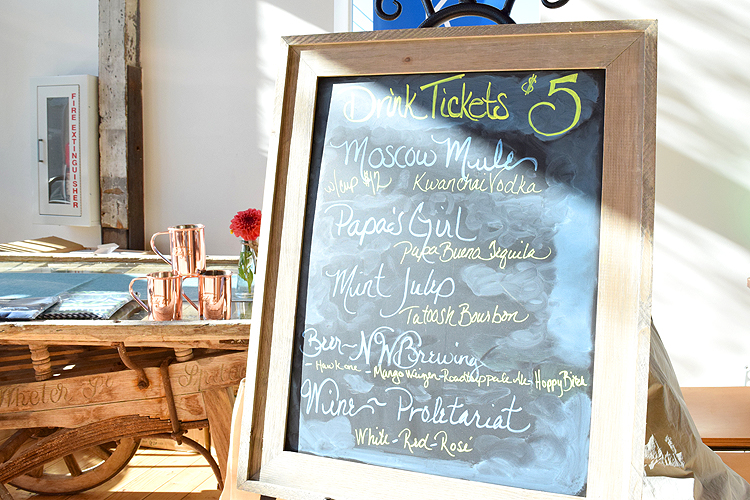 Drink Tickets $5
Moscow Mule
w/cup $12 Kwanchai Vodka
Papa's Girl
Papa Buena Tequila
Mint Julep
Tatoosh Bourbon
Beer~NW Brewing
-Hawkone-Mango Weizen-Roadtrip pale ale-Hoppy Bitch
Wine~Proletariat
White-Red-Rosé
FIRE EXTINGUISHER
Wheeler St